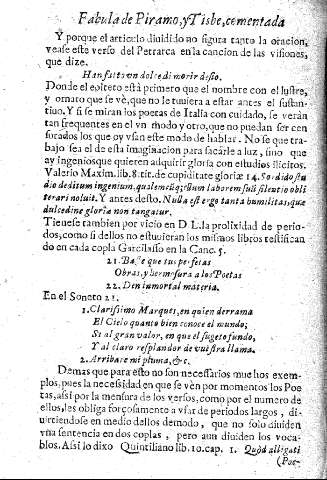 Fabula de Piramo, y Tisbe, comentada
Y porque el articulo diuidido no sigura tanto la oracion,
vease este verso del Petrarca en la cancion de las visiones,
que dize.
Han fatto vn dolce di morir desio.
Donde el epiteto està primero que el nombre con el lustre,
y ornato que se vè, que no le tuuiera a estar antes el sustan-
tiuo. Y si se miran los poetas de Italia con cuidado, se veràn
tan frequentes en el vn modo y otro, que no puedan ser cen-
surados los que oy vsan este modo de hablar. No se que tra-
bajo sea el de esta imaginacion para sacarle a luz, sino que
ay ingenios que quieren adquirir gloria con estudios ilicitos.
Valerio Maxim. lib. 8. tit. de cupiditate gloriæ 14.
terari noluit. Y antes desto. Nulla est ergo tanta humilitas, quæ
dulcedine gloriæ non tangatur.
Tienese tambien por vicio en D. L. la prolixidad de perio-
dos, como si dellos no estuuieran los mismos libros testifican
do en cada copla Garcilasso en la Canc. 5.
21. que sus perfetas
Obras, y hermosura a los Poetas
22. Den inmortal materia.
En el Soneto 21.
1. Clarissimo Marques, en quien derrama
El Cielo quanto bien conoce el mundo;
Si al gran valor, en que el sugeto fundo,
Y al claro resplandor de vuestra llama.
2. Arribare mi pluma, &c.
Demas que para esto no son necessarios muchos exem-
plos, pues la necessidad, en que se vèn por momentos los Poe
tas, assi por la mensura de los versos, como por el numero de
ellos, les obliga forçosamente a vsar de periodos largos, di-
uirtiendose en medio dellos de modo, que no solo diuiden
vna sentencia en dos coplas, pero aun diuiden los voca-
blos. Assi lo dixo Quintiliano lib. 10. cap. 1. Quòd alligati
(Poe-